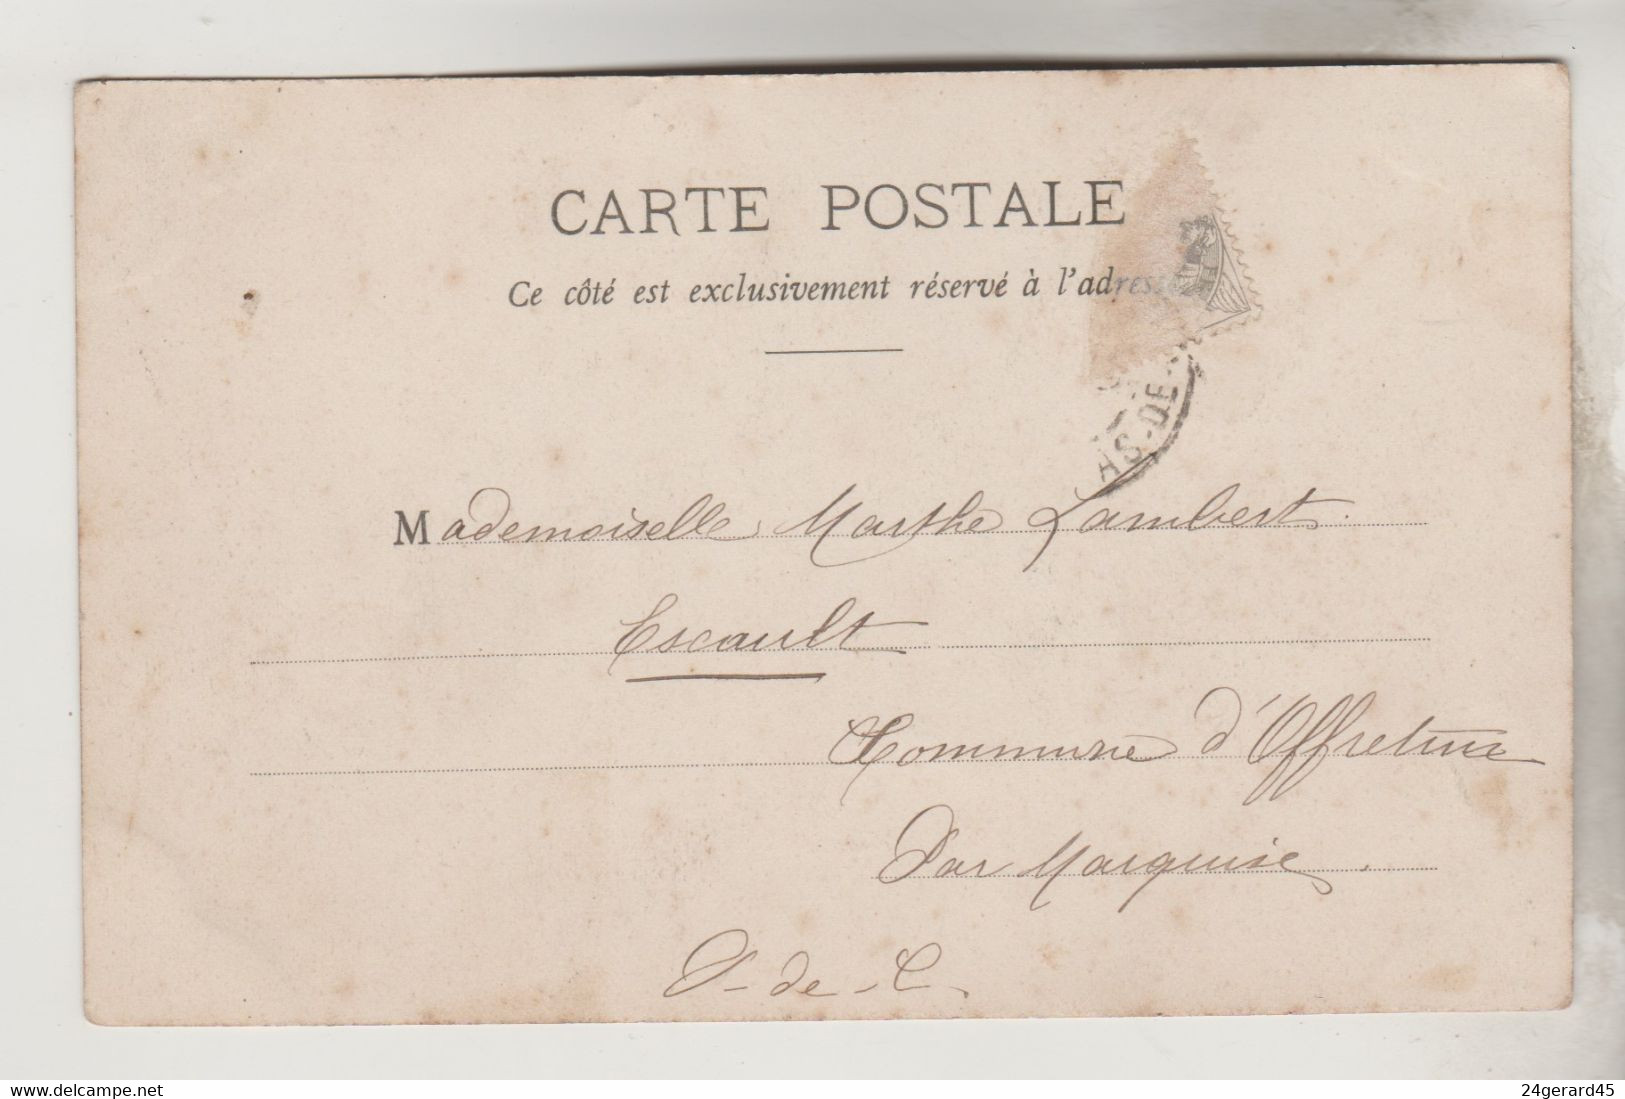 CARTE POSTALE
Ce côté est exclusivement réservé à l'adresse
AS-DE
Mademoiselle Marthe Lambert
Escault
Commune d'Offretun
Par Marquise
P-de-C.
Click on image to close
24gerard45